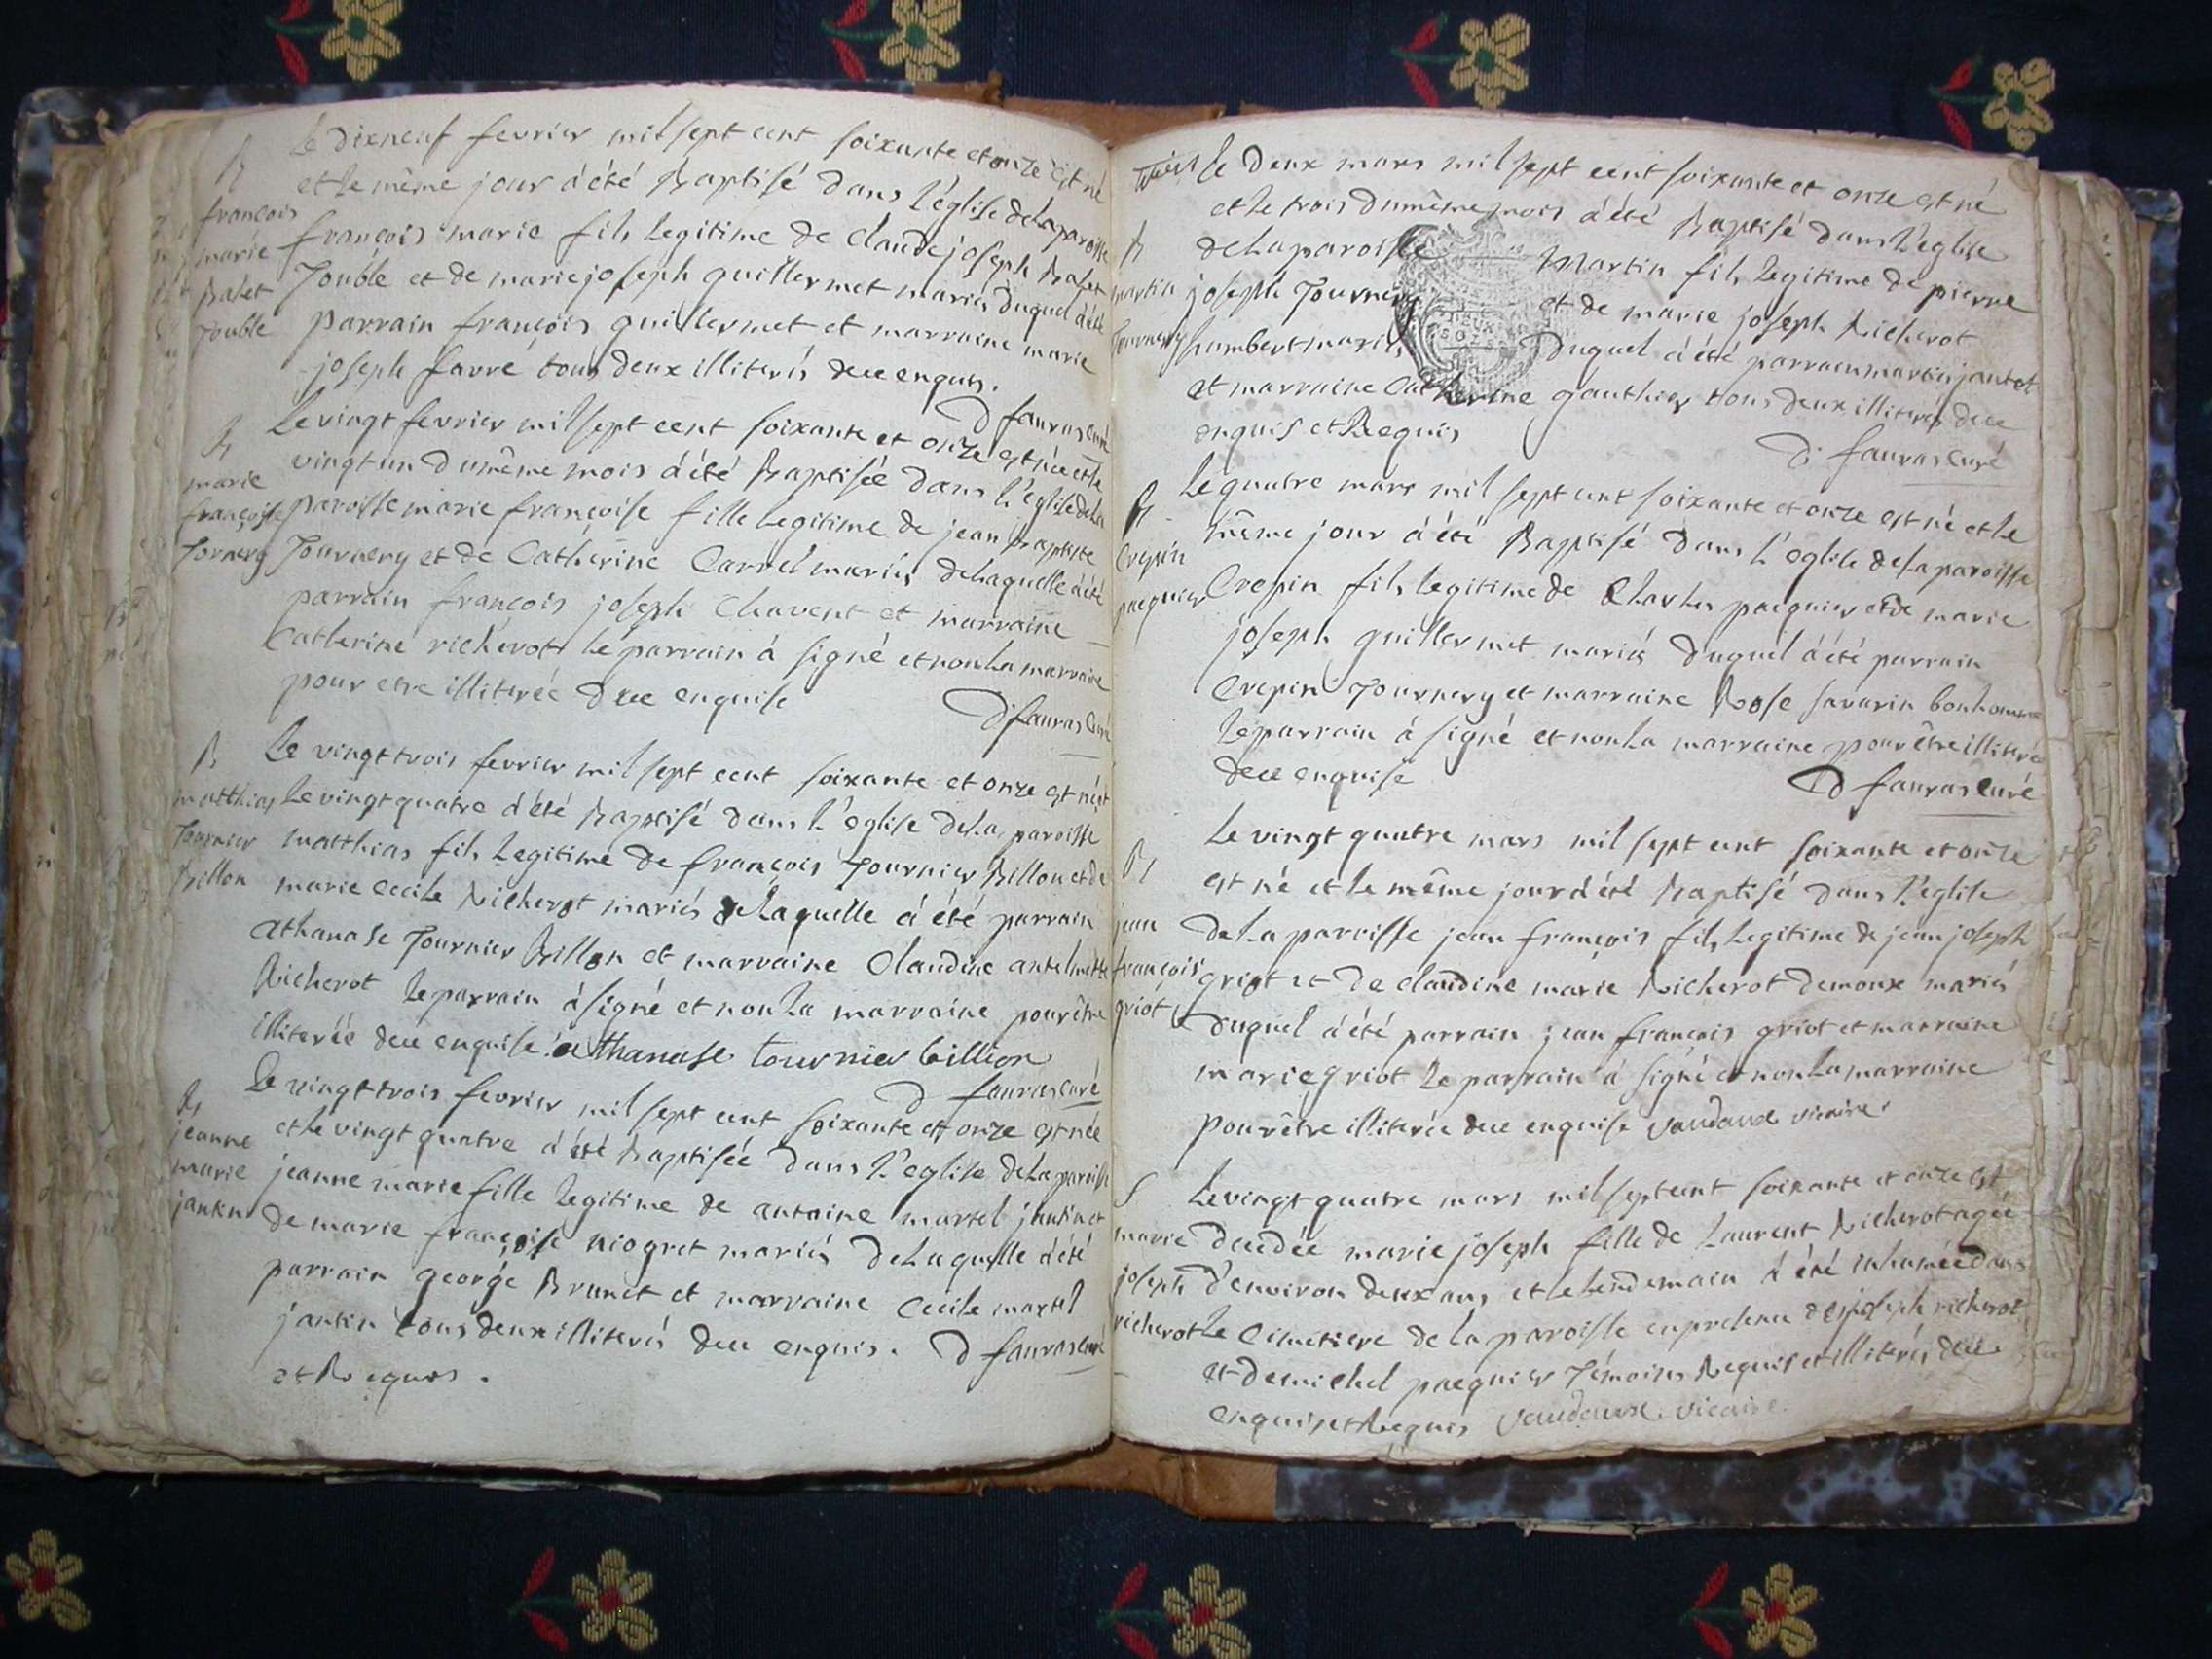 B
françois
marie
Balet
Jouble
Le dixneuf fevrier mil sept cent soixante et onze est né
et le même jour à été Baptisé dans l'église de la paroisse
françois marie fils legitime de claude joseph Balet
Jouble et de marie joseph guillermet mariés duquel à été
parrain françois guillermet et marraine marie
joseph favre tous deux illiterés de ce enquis.
D fauras curé
B
marie
françoise
Tornery
Le vingt fevrier mil sept cent soixante et onze est née et le
vingt un du même mois à été Baptisée dans l'église de la
paroisse marie françoise fille legitime de jean Baptiste
Tournery et de Catherine Carrel mariés de laquelle à été
parrain françois joseph Chavent et marraine
Catherine richerot le parrain à signé et non la marraine
pour etre illiterée de ce enquise
D fauras Curé
B
matthias
Tournier
Billon
Le vingt trois fevrier mil sept cent soixante et onze est né et
le vingt quatre à été Baptisé dans l'église de la paroisse
matthias fils legitime de françois Tournier Billon et de
marie cecile Richerot mariés de laquelle à été parrain
athanase Tournier Billon et marraine Claudine antelmette
Richerot le parrain à signé et non la marraine pour être
illiterée de ce enquise athanase tournier billion
D fauras curé
B
jeanne
marie
jantin
Le vingt trois fevrier mil sept cent soixante et onze est née
et le vingt quatre à été Baptisée dans l'église de la paroisse
jeanne marie fille legitime de antoine martel jantin et
de marie françoise niogret mariés de laquelle à été
parrain george Brunet et marraine Cecile martel
jantin tous deux illiterés de ce enquis. D fauras curé
et Requis.
B
martin
Tournery
Le deux mars mil sept cent soixante et onze est né
et le trois du même mois à été Baptisé dans l'église
de la paroisse Martin fils legitime de pierre
joseph Tournery et de marie joseph Richerot
humbert mariés duquel à été parrain martin jantet
et marraine Catherine gauthier tous deux illiterés de ce
enquis et Requis
D. fauras curé
B
Crepin
pacquier
Le quatre mars mil sept cent soixante et onze est né et le
même jour à été Baptisé dans l'église de la paroisse
Crepin fils legitime de Charles pacquier et de marie
joseph guillermet mariés duquel à été parrain
Crepin Tournery et marraine Rose savarin bonhomme
le parrain à signé et non la marraine pour être illiterée
de ce enquise
D fauras curé
B
jean
françois
griot
Le vingt quatre mars mil sept cent soixante et onze
est né et le même jour à été Baptisé dans l'église
de la paroisse jean françois fils legitime de jean joseph
griot et de claudine marie Richerot demoux mariés
duquel à été parrain jean françois griot et marraine
marie griot le parrain à signé et non la marraine
pour être illiterée de ce enquise vaudaux vicaire.
S
marie
joseph
richerot
Le vingt quatre mars mil sept cent soixante et onze est
decedée marie joseph fille de Laurent Richerot agée
d'environ deux ans et le lendemain à été inhumée dans
le Cimetiere de la paroisse en presence de joseph richerot
et de michel pacquier Témoins Requis et illiterés de ce
enquis et Requis vaudaux. vicaire.